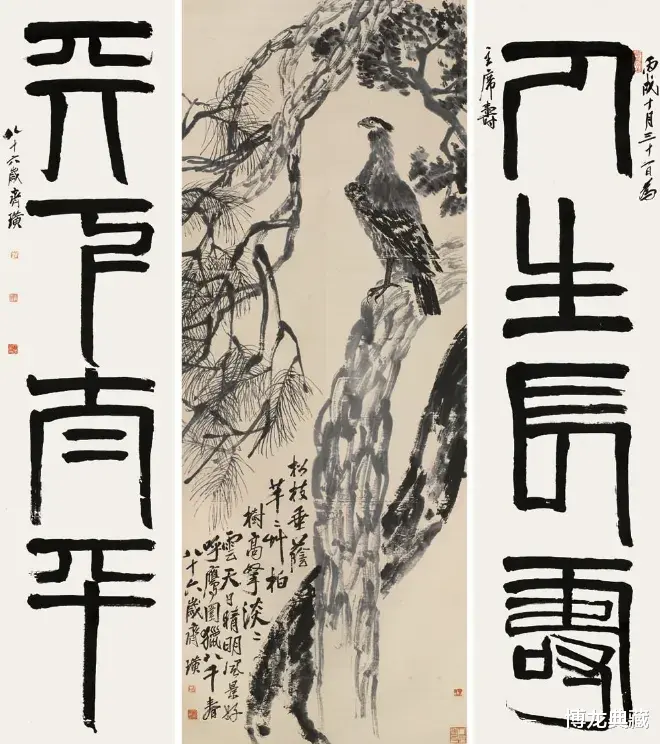 丙戌十月三十一日為
人生長壽
主席壽
松枝垂蔭
芊〻艸柏
樹高擎淡〻
雲天日晴明風景好
呼鷹圖獵八千春
八十六歲齊璜
天下太平
八十六歲齊璜
博龙典藏